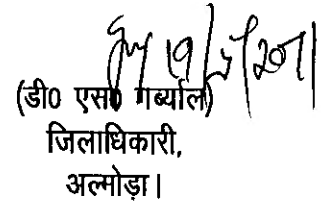 19/5/2011
(डी0 एस0 गर्ब्याल)
जिलाधिकारी,
अल्मोड़ा।